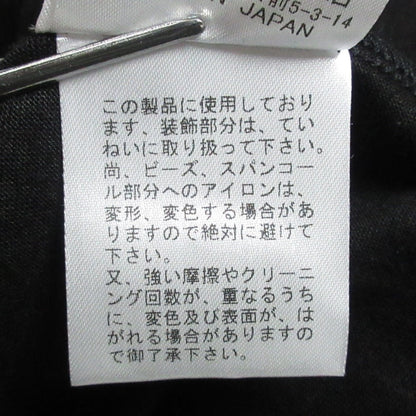 前5-3-14
N JAPAN
この製品に使用しており
ます、装飾部分は、てい
ねいに取り扱って下さい。
尚、ビーズ、スパンコー
ル部分へのアイロンは、
変形、変色する場合があ
りますので絶対に避けて
下さい。
又、強い摩擦やクリーニ
ング回数が、重なるうち
に、変色及び表面が、は
がれる場合がありますの
で御了承下さい。